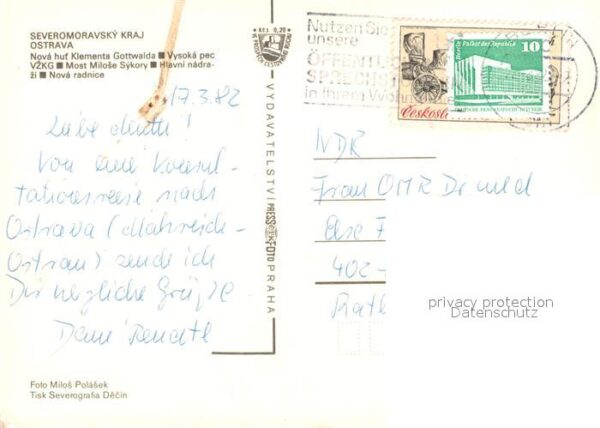 SEVEROMORAVSKÝ KRAJ
OSTRAVA
Nová huť Klementa Gottwalda ■ Vysoká pec
VŽKG ■ Most Miloše Sýkory ■ Hlavní nádra-
ží ■ Nová radnice
Kčs 0,20
17.3.82
Von
Konsul-
tationsreise nach
Ostrava (Mährisch-
Ostrau) sende ich
Dir herzliche Grüße
Renate
Foto Miloš Polášek
Tisk Severografia Děčín
VYDAVATELSTVÍ PRESSFOTO PRAHA
Nutzen Sie
unsere
ÖFFENTL
SPRECHST
in Ihrem Wohn
Českoslo
Berlin Palast der Republik
10
DDR
Frau OMR Dr med
402-
privacy protection
Datenschutz